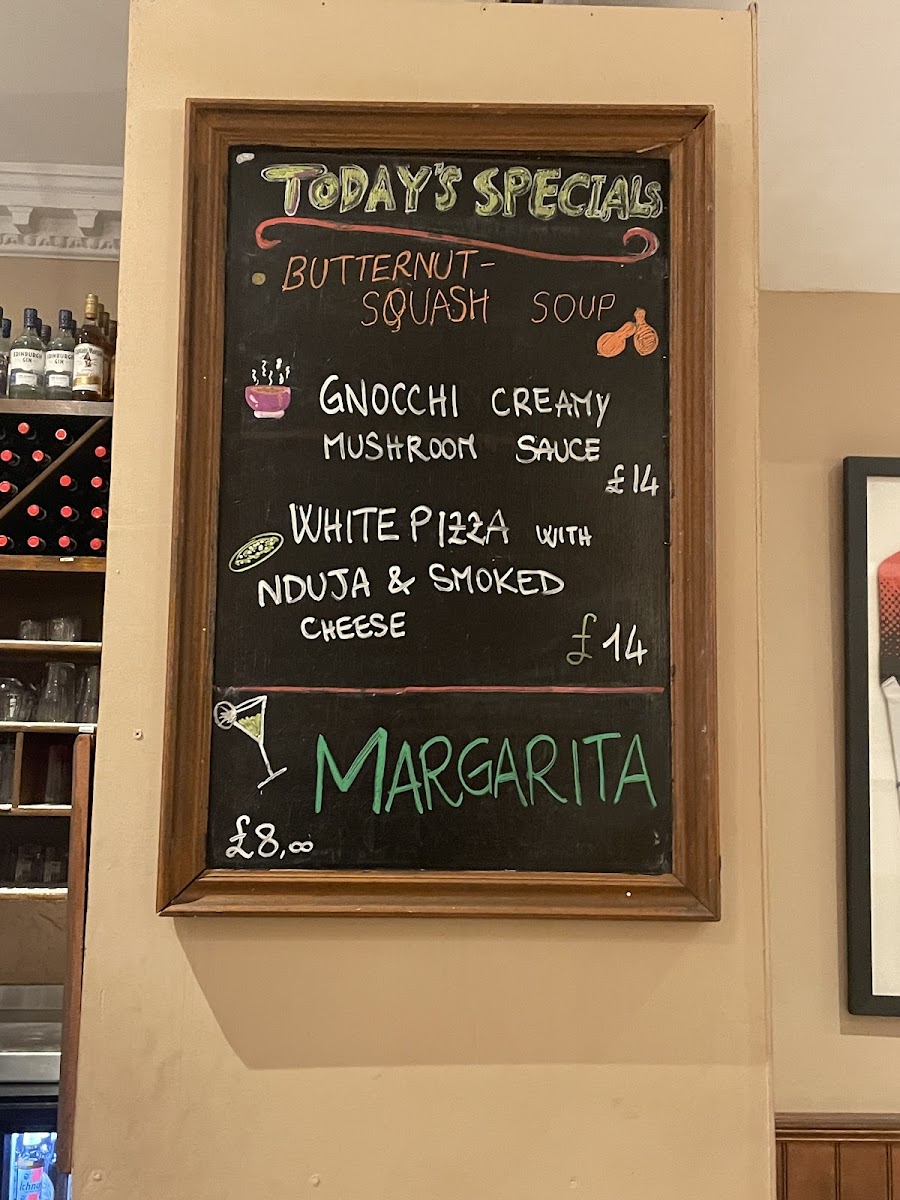 TODAY'S SPECIALS
BUTTERNUT-
SQUASH SOUP
GNOCCHI CREAMY
MUSHROOM SAUCE
£14
WHITE PIZZA WITH
NDUJA & SMOKED
CHEESE
£14
MARGARITA
£8,00
EDINBURGH
GIN
EDINBURGH
GIN